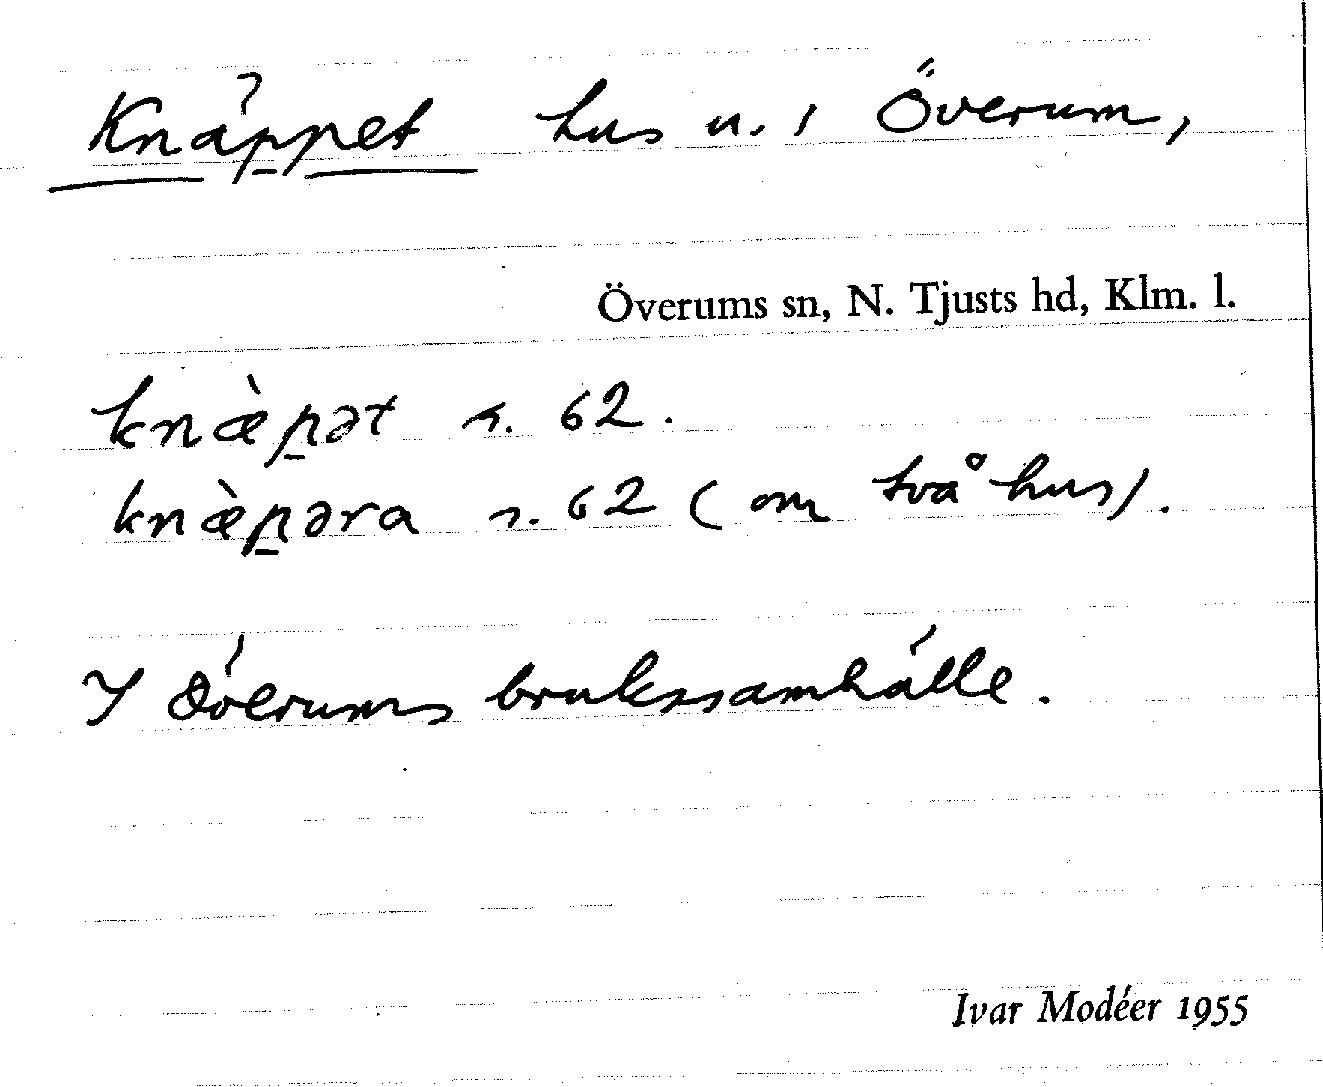 Knäppet hus n. i Överum,
Överums sn, N. Tjusts hd, Klm. l.
knæ̀pət n. 62.
knæ̀pəra n. 62 (om två hus).
I Överums brukssamhälle.
Ivar Modéer 1955